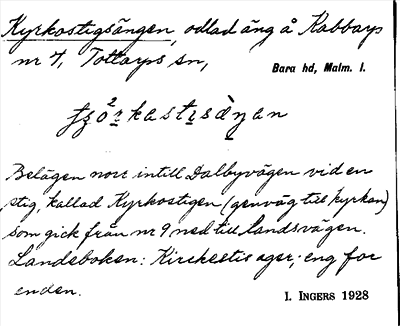 Kyrkostigsängen, odlad äng å Kabbarps
nr 7, Tottarps sn,
Bara hd, Malm. l.
Belägen norr intill Dalbyvägen vid en
stig, kallad Kyrkostigen (genväg till kyrkan)
som gick från nr 9 ned till landsvägen.
Landeboken: Kirckestis ager; eng for
enden.
I. INGERS 1928